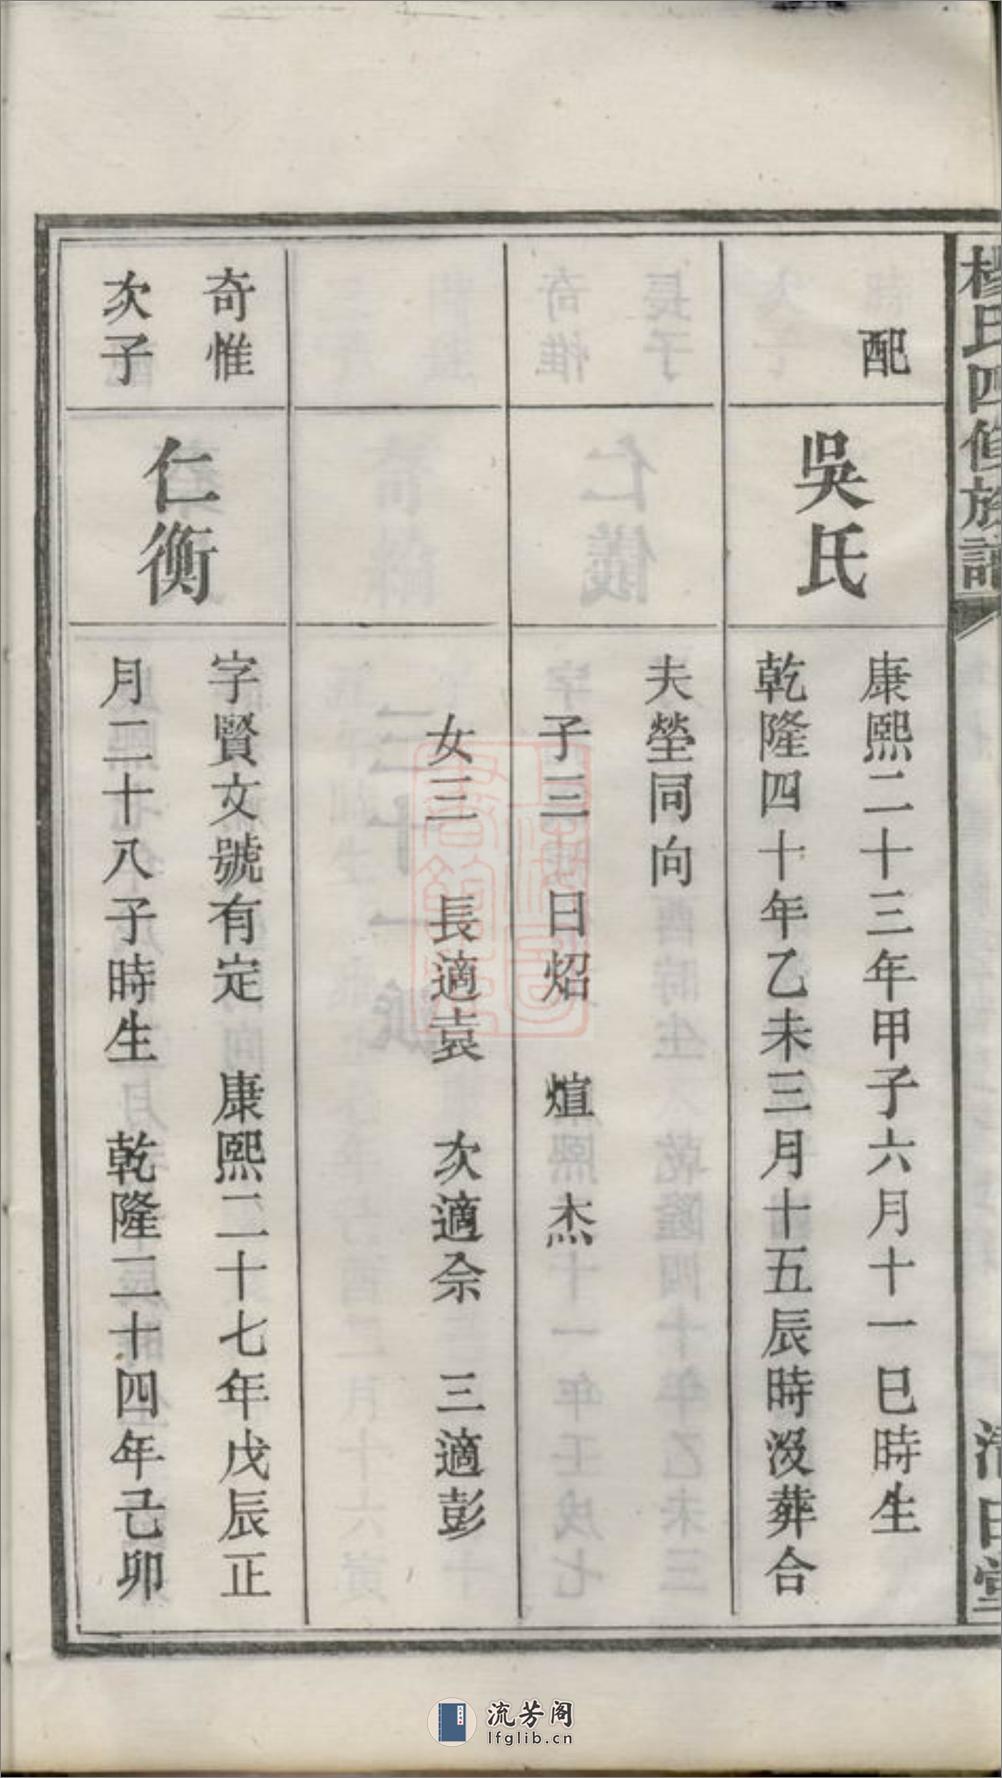 楊氏四修族譜
清白堂
配
吳氏
康熙二十三年甲子六月十一巳時生
乾隆四十年乙未三月十五辰時沒葬合
夫塋同向
子三 日炤 煊 杰
女三 長適袁 次適佘 三適彭
奇惟
次子
仁衡
字賢文號有定 康熙二十七年戊辰正
月二十八子時生 乾隆二十四年己卯
流芳阁
lfglib.cn